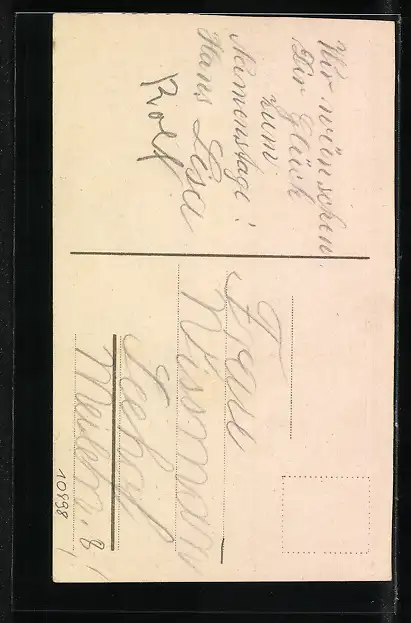 Wir wünschen
Dir Glück
zum
Namenstage!
Hans Lisa
Rolf
Frau
Wissmann
Seehof
Meilen
10998